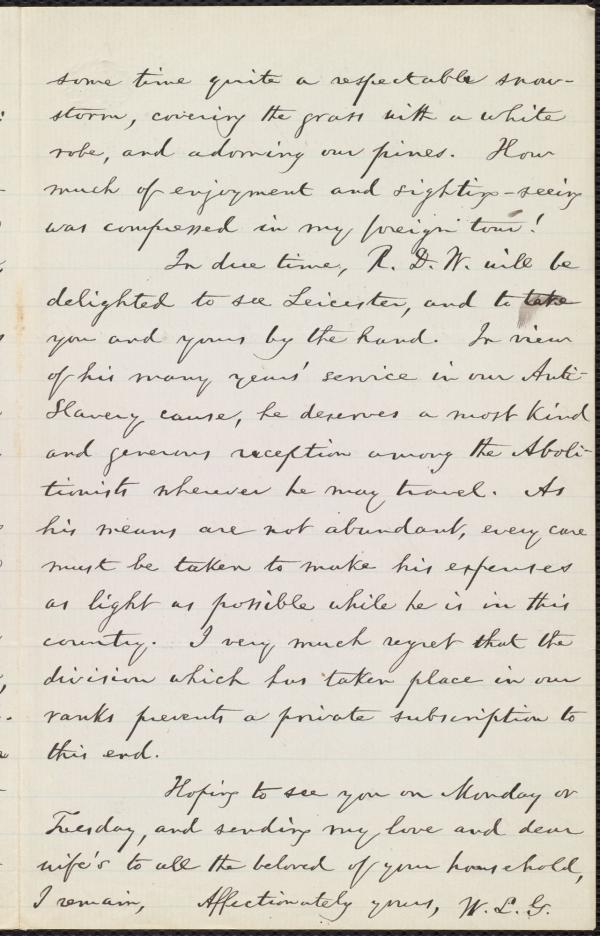 some time quite a respectable snow-
storm, covering the grass with a white
robe, and adorning our pines. How
much of enjoyment and sights-seeing
was compressed in my foreign tour!
In due time, R. D. W. will be
delighted to see Leicester, and to take
you and yours by the hand. In view
of his many years' service in our Anti-
Slavery cause, he deserves a most kind
and generous reception among the Aboli-
tionists wherever he may travel. As
his means are not abundant, every care
must be taken to make his expenses
as light as possible while he is in this
country. I very much regret that the
division which has taken place in our
ranks prevents a private subscription to
this end.
Hoping to see you on Monday or
Tuesday, and sending my love and dear
wife's to all the beloved of your household,
I remain, Affectionately yours, W. L. G.